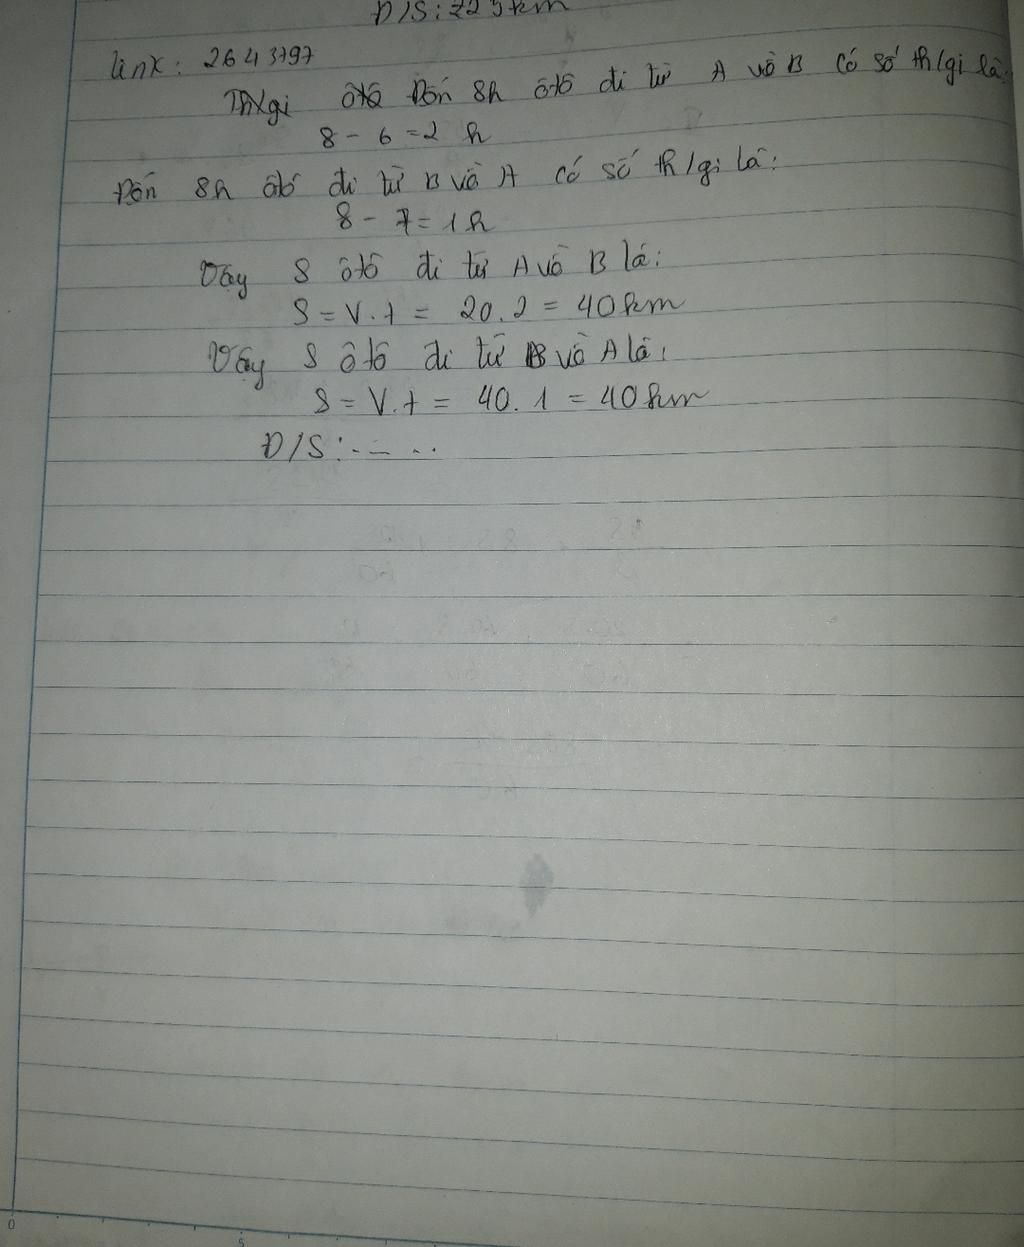 Đ/S: 225km
link: 2643797
Th/gi ôtô Đến 8h ôtô đi từ A về B có số th/gi là:
8 - 6 = 2 h
Đến 8h ôtô đi từ B về A có số th/gi là:
8 - 7 = 1h
Vậy S ôtô đi từ A về B là:
S = V.t = 20.2 = 40km
Vậy S ôtô đi từ B về A là:
S = V.t = 40.1 = 40km
Đ/S: .....
0
5